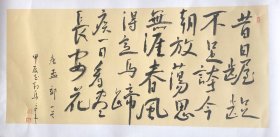 昔日齷齪
不足誇今
朝放蕩思
無涯春風
得意馬蹄
疾一日看盡
長安花
孟郊
甲辰